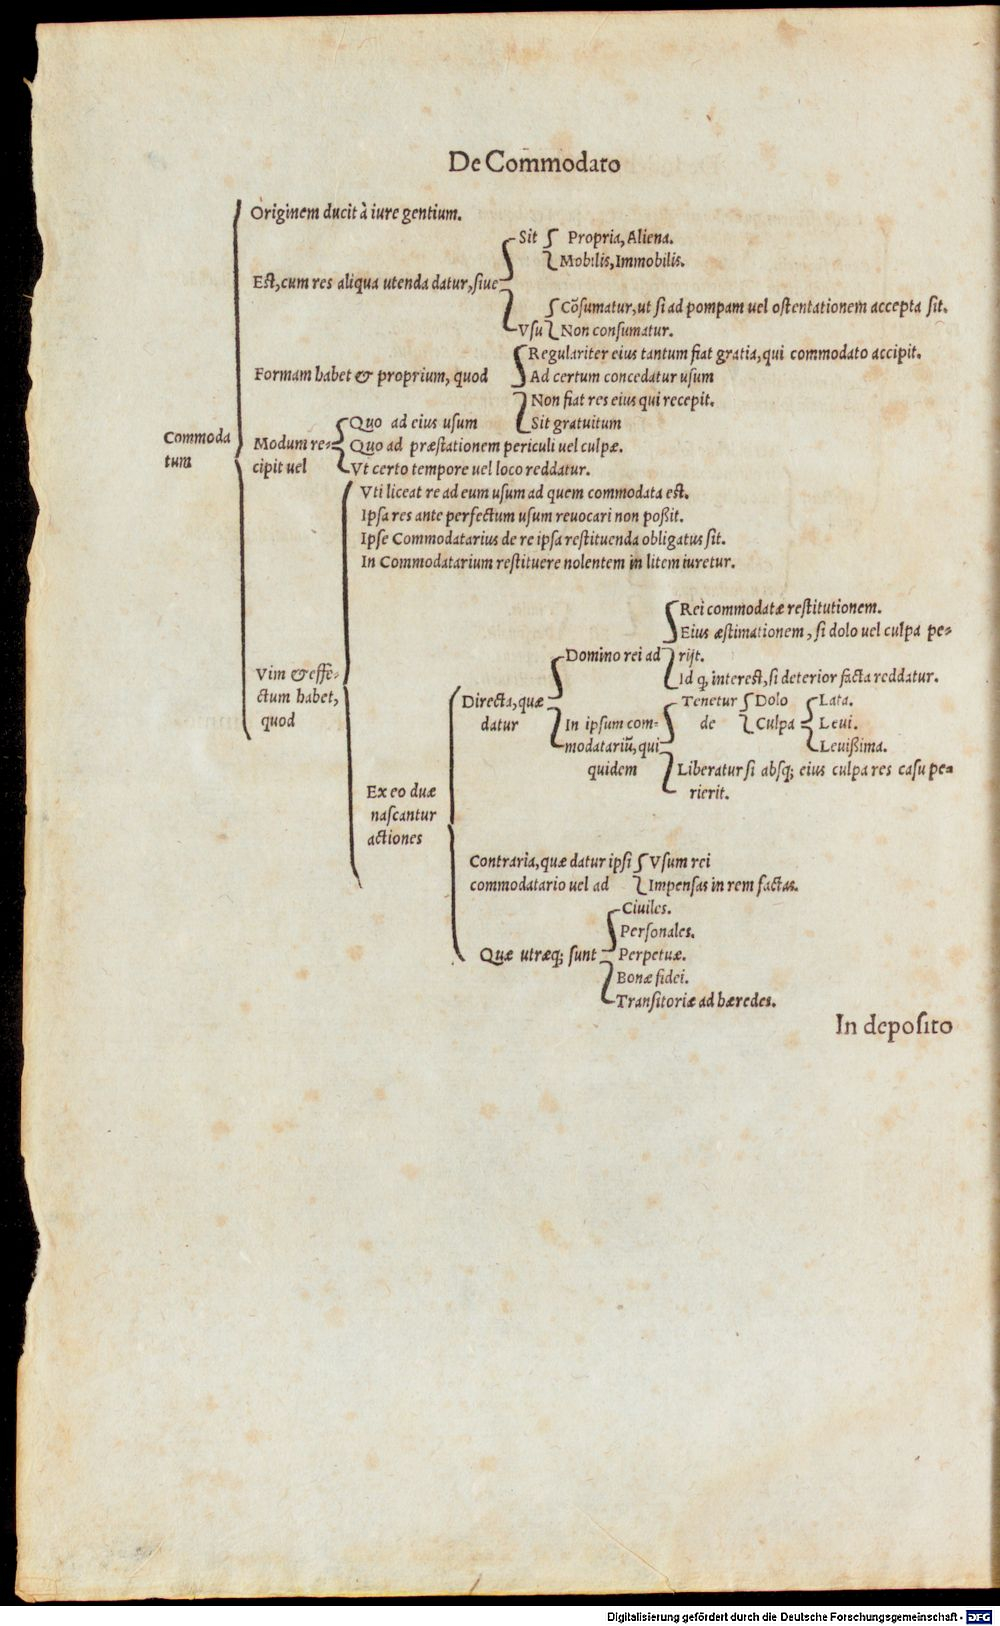 De Com̄modato
Originem ducit à iure gentium.
Sit Propria, Aliena.
Mobilis, Immobilis.
Est, cum res aliqua utenda datur, siue
Cõsumatur, ut si ad pompam uel ostentationem accepta sit.
Vsu Non consumatur.
Regulariter eius tantum fiat gratia, qui commodato accipit.
Formam habet & proprium, quod Ad certum concedatur usum
Non fiat res eius qui recepit.
Quo ad eius usum Sit gratuitum
Commoda Modum re- Quo ad præstationem periculi uel culpæ.
tum cipit uel Vt certo tempore uel loco reddatur.
Vti liceat re ad eum usum ad quem commodata est.
Ipsa res ante perfectum usum reuocari non poßit.
Ipse Commodatarius de re ipsa restituenda obligatus sit.
In Commodatarium restituere nolentem in litem iuretur.
Rei commodatæ restitutionem.
Eius æstimationem, si dolo uel culpa pe-
Domino rei ad rijt.
Vim & effe- Id q, interest, si deterior facta reddatur.
ctum habet, Directa, quæ Tenetur Dolo Lata.
quod datur In ipsum com- de Culpa Leui.
modatariũ, qui Leuißima.
quidem Liberatur si absq; eius culpa res casu pe-
Ex eo duæ rierit.
nascantur
actiones
Contraria, quæ datur ipsi Vsum rei
commodatario uel ad Impensas in rem factas.
Ciuiles.
Personales.
Quæ utræq; sunt Perpetuæ.
Bonæ fidei.
Transitoriæ ad hæredes.
In deposito
Digitalisierung gefördert durch die Deutsche Forschungsgemeinschaft - DFG